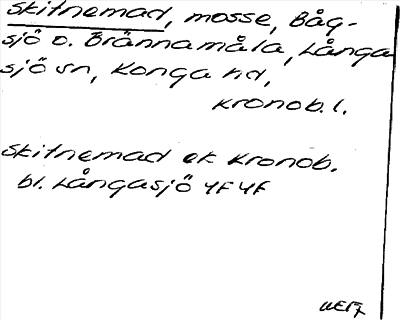 Skitnemad, mosse, Båg-
sjö o. Brännamåla, Långa
sjö sn, Konga hd,
Kronob. l.
Skitnemad ek Kronob.
bl. Långasjö 4F4F